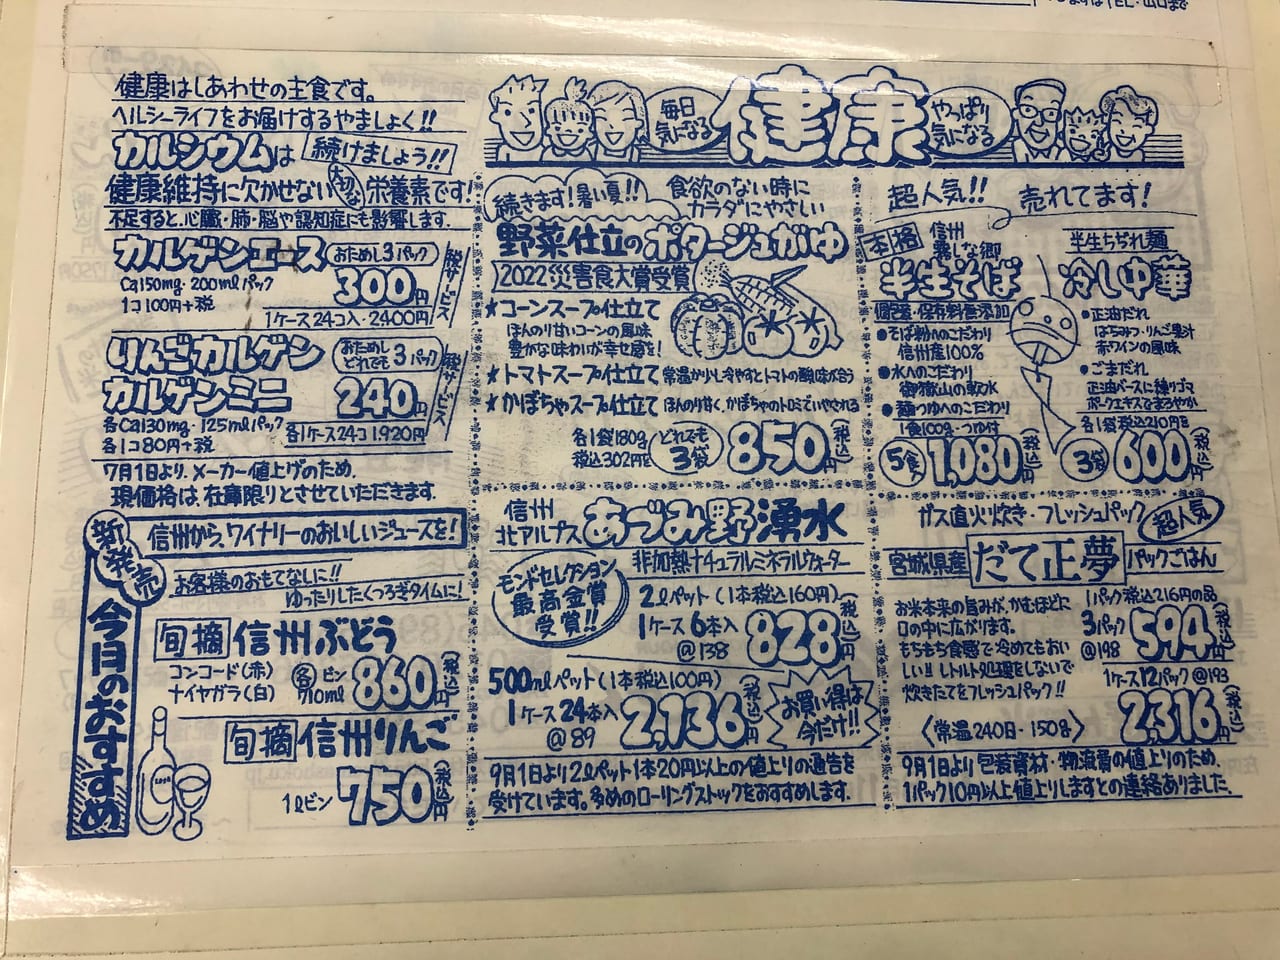 健康はしあわせの主食です。
ヘルシーライフをお届けするやましょく!!
カルシウムは 続けましょう!!
健康維持に欠かせない大切な栄養素です!
不足すると、心臓・肺・脳や認知症にも影響します。
カルゲンエース おためし3パック
Ca150mg・200mlパック 300円
1コ100円+税
1ケース24コ入・2400円
税サービス
りんごカルゲン おためしどれでも3パック
カルゲンミニ 240円
各Ca130mg・125mlパック
各1コ80円+税 各1ケース24コ1,920円
税サービス
7月1日より、メーカー値上げのため、
現価格は、在庫限りとさせていただきます。
新発売
信州から、ワイナリーのおいしいジュースを!
お客様のおもてなしに!!
ゆったりしたくつろぎタイムに!
今日のおすすめ
旬摘 信州ぶどう
コンコード(赤)
ナイヤガラ(白)
各ビン710ml 860円(税込)
旬摘 信州りんご
1ℓビン 750円(税込)
毎日気になる 健康 やっぱり気になる
続きます!暑い夏!! 食欲のない時に
カラダにやさしい
野菜仕立のポタージュがゆ
2022災害食大賞受賞
★コーンスープ仕立て
ほんのり甘いコーンの風味
豊かな味わいが幸せ感を!
★トマトスープ仕立て 常温か少し冷やすとトマトの酸味が合う
★かぼちゃスープ仕立て ほんのり甘く、かぼちゃのトロミでいやされる
各1袋180g
税込302円を どれでも3袋 850円(税込)
信州
北アルプス あづみ野湧水
モンドセレクション最高金賞受賞!!
非加熱ナチュラルミネラルウォーター
2ℓペット(1本税込160円)
1ケース6本入
@138 828円(税込)
500mlペット(1本税込100円)
1ケース24本入
@89 2,136円(税込)
お買い得は今だけ!!
9月1日より2ℓペット1本20円以上の値上りの通告を
受けています。多めのローリングストックをおすすめします。
超人気!! 売れてます!
本格 信州
霧しな郷
半生そば
保存料無添加
●そば粉へのこだわり
信州産100%
●水へのこだわり
御嶽山の軟水
●麺つゆへのこだわり
1食100g・つゆ付
5食 1,080円(税込)
半生ちぢれ麺
冷し中華
●正油だれ
はちみつ・りんご果汁
赤ワインの風味
●ごまだれ
正油ベースに練りゴマ
ポークエキスなまろやか
各1袋税込210円を
3袋 600円(税込)
ガス直火炊き・フレッシュパック 超人気
宮城県産 だて正夢 パックごはん
お米本来の旨みが、かむほどに
口の中に広がります。
もちもち食感で冷めてもおい
しい!!レトルト処理をしないで
炊きたてをフレッシュパック!!
〈常温240日・150g〉
1パック税込216円の品
3パック
@198 594円(税込)
1ケース12パック@193
2,316円(税込)
9月1日より包装資材・物流費の値上りのため、
1パック10円以上値上りしますとの連絡ありました。